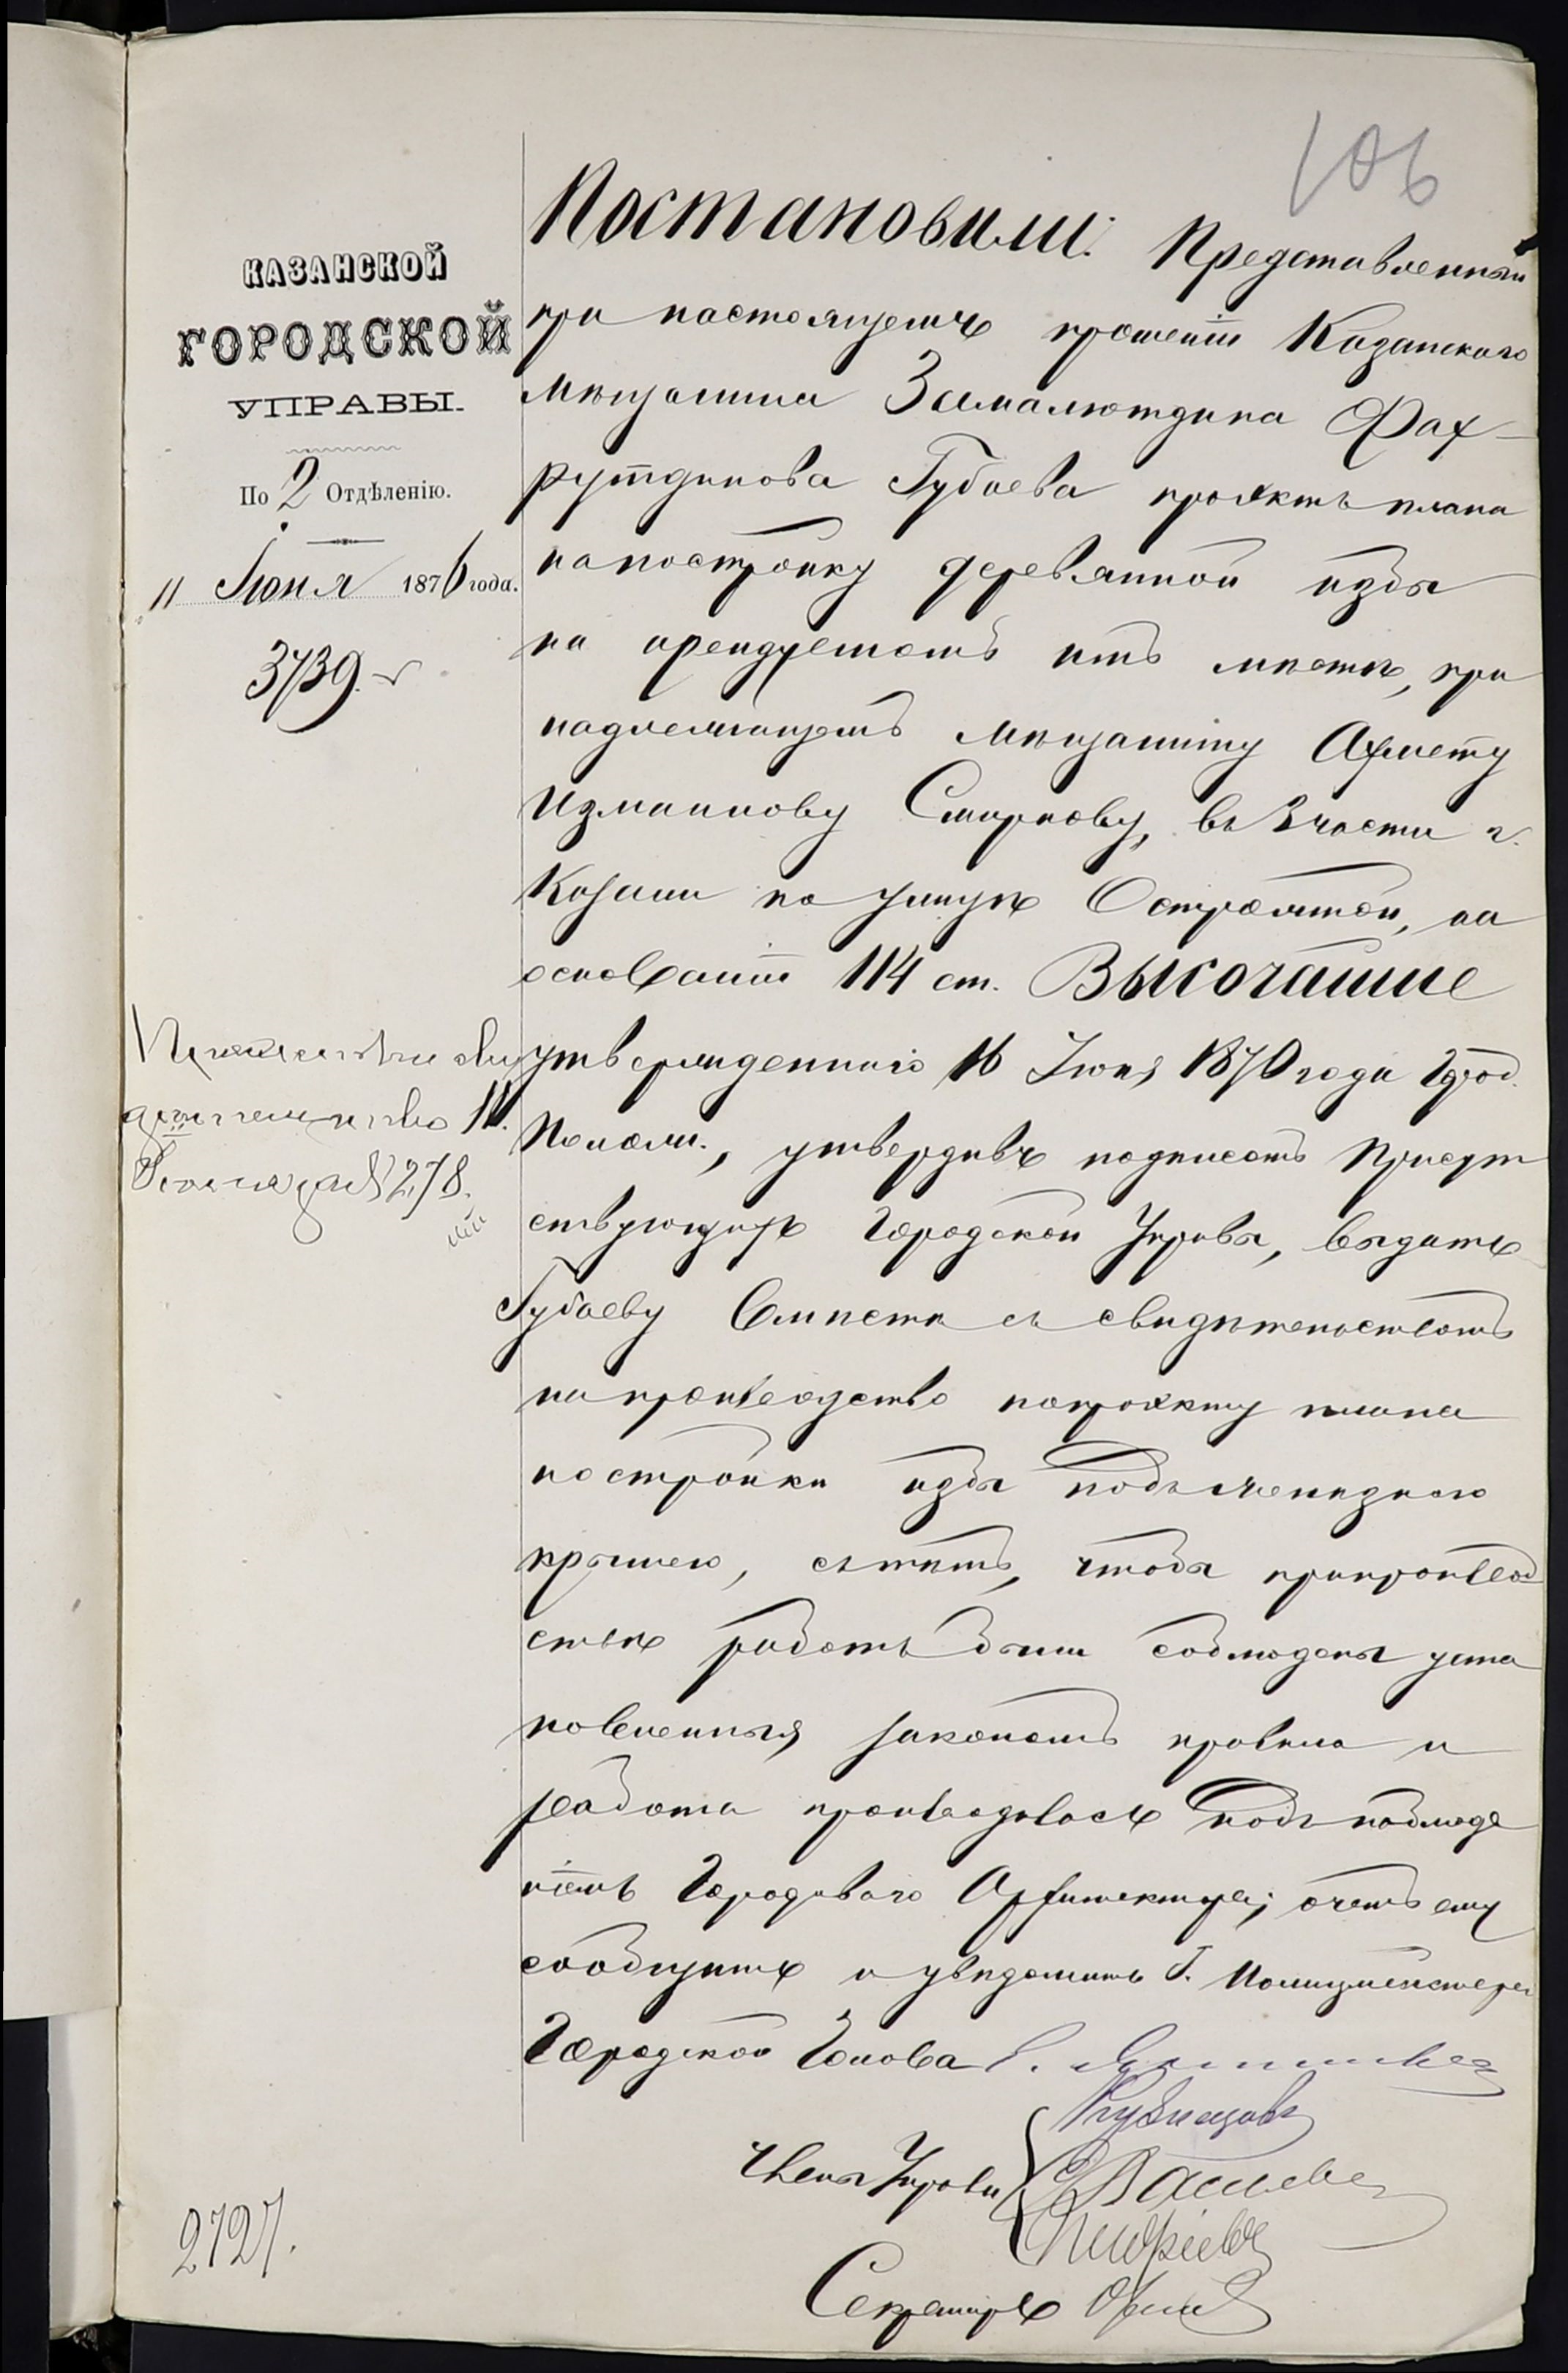 106
КАЗАНСКОЙ
ГОРОДСКОЙ
УПРАВЫ.
По 2 Отдѣленію.
11 Іюня 1876 года.
3739.
278.
2727.
Постановили: Представленный
при настоящемъ прошеніи Казанскаго
мѣщанина Замалютдина Фах-
рутдинова Губаева проэктъ плана
на постройку деревянной избы
на арендуемомъ имъ мѣстѣ, при
надлежащемъ мѣщанину Ахмету
Измаилову Смирнову, въ 3 части г.
Казани по улицѣ Остроятой, на
основаніи 114 ст. Высочайше
утвержденнаго 16 Іюня 1870 года Город.
Полож., утвердивъ подписомъ Присут
ствующихъ Городской Управы, выдать
Губаеву вмѣстѣ съ свидѣтельствомъ
на производство по проэкту плана
постройки избы подъ желѣзною
крышею, съ тѣмъ, чтобы при производ
ствѣ работъ были соблюдены уста
новленныя закономъ правила и
работа производилась подъ наблюде
ніемъ Городоваго Архитектора; о чемъ ему
сообщить и увѣдомить Г. Полицмейстера
Городской Голова
Кузнецовъ
Члены Управы
Секретарь